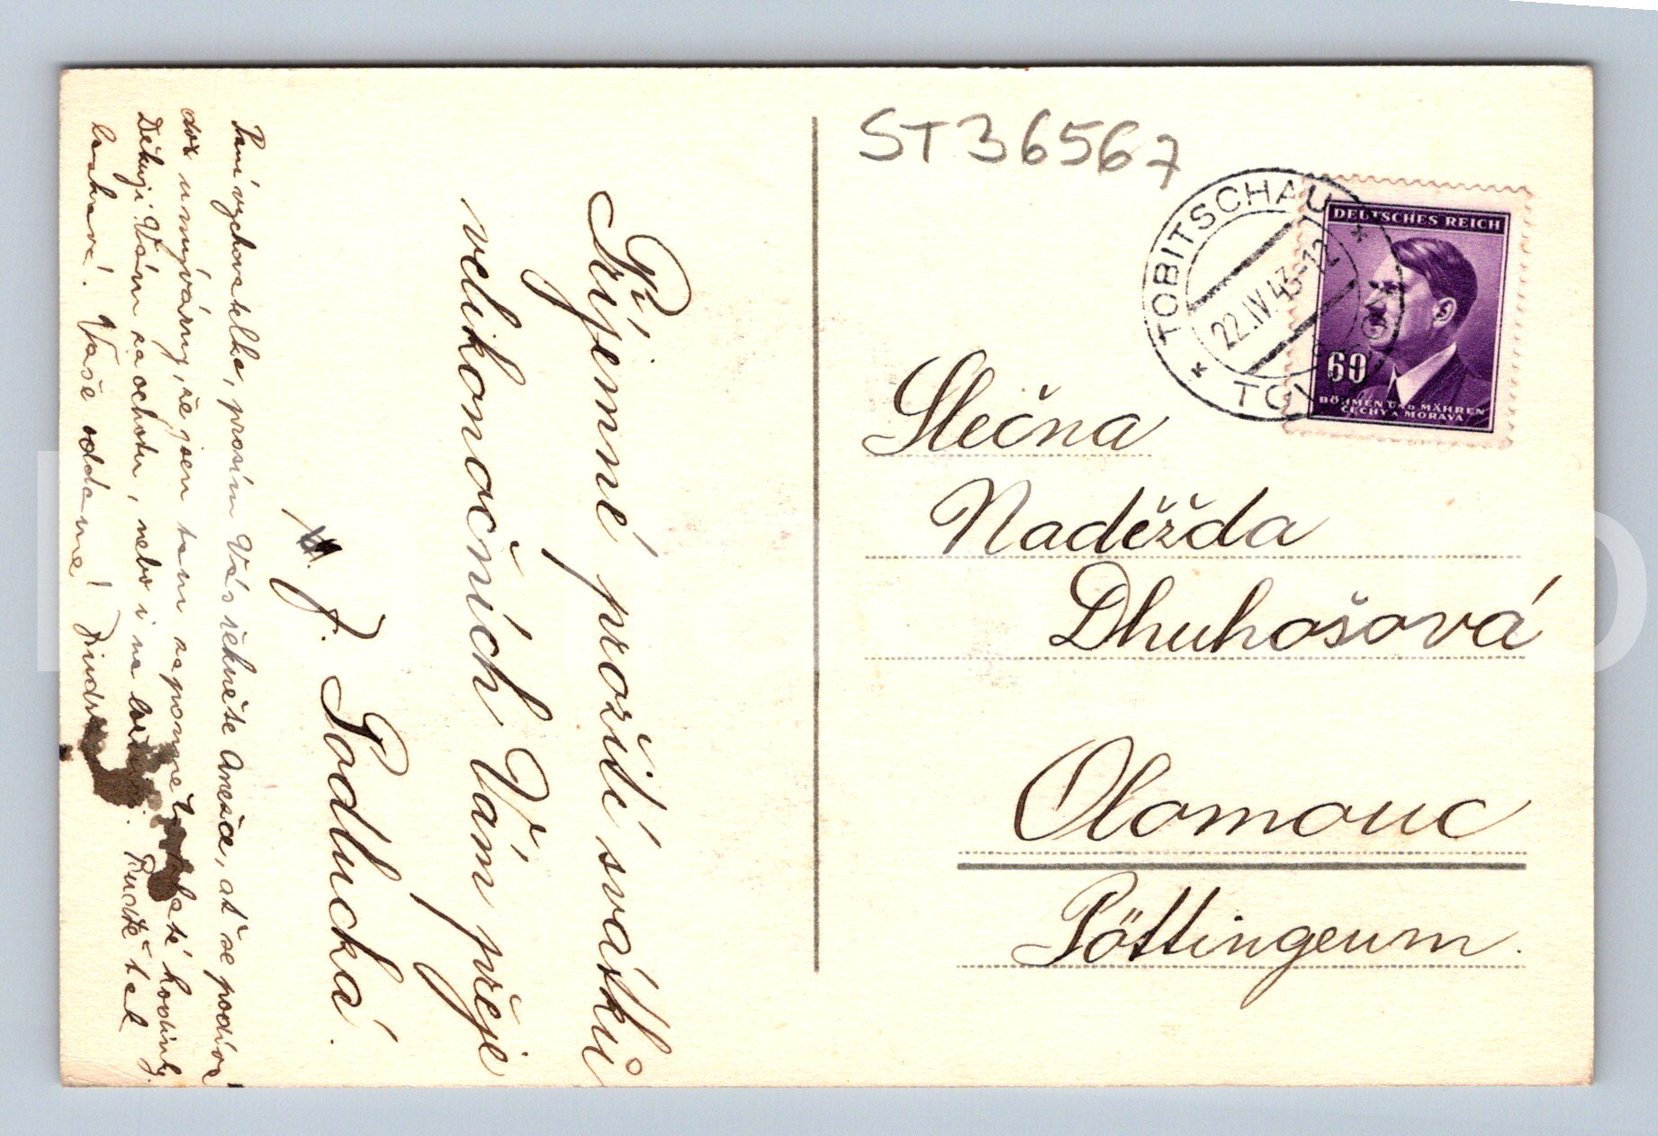 Příjemné prožití svátků
velikonočních Vám přeje
J. Podlucká.
Paní vychovatelko, prosím Vás řekněte Anežce, ať se podívá
do umývárny, že jsem tam zapomněla zlaté hodinky.
Děkuji Vám za ochotu, nebo i na Buďte tak
laskavá! Vaše oddaná!
ST36567
TOBITSCHAU
22.IV.43-12
TOV
DEUTSCHES REICH
60
BÖHMEN UND MÄHREN
ČECHY A MORAVA
Slečna
Naděžda
Dhuhošová
Olomouc
Pöttingeum.